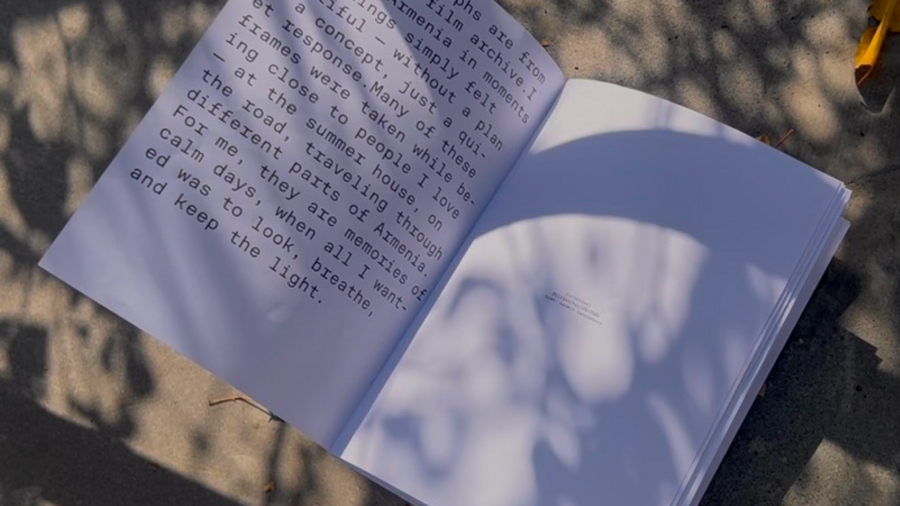 are from
film archive.I
Armenia in moments
simply felt
— without a plan
a concept, just a qui-
et response.Many of these
frames were taken while be-
ing close to people I love
— at the summer house, on
the road, traveling through
different parts of Armenia.
For me, they are memories of
calm days, when all I want-
ed was to look, breathe,
and keep the light.